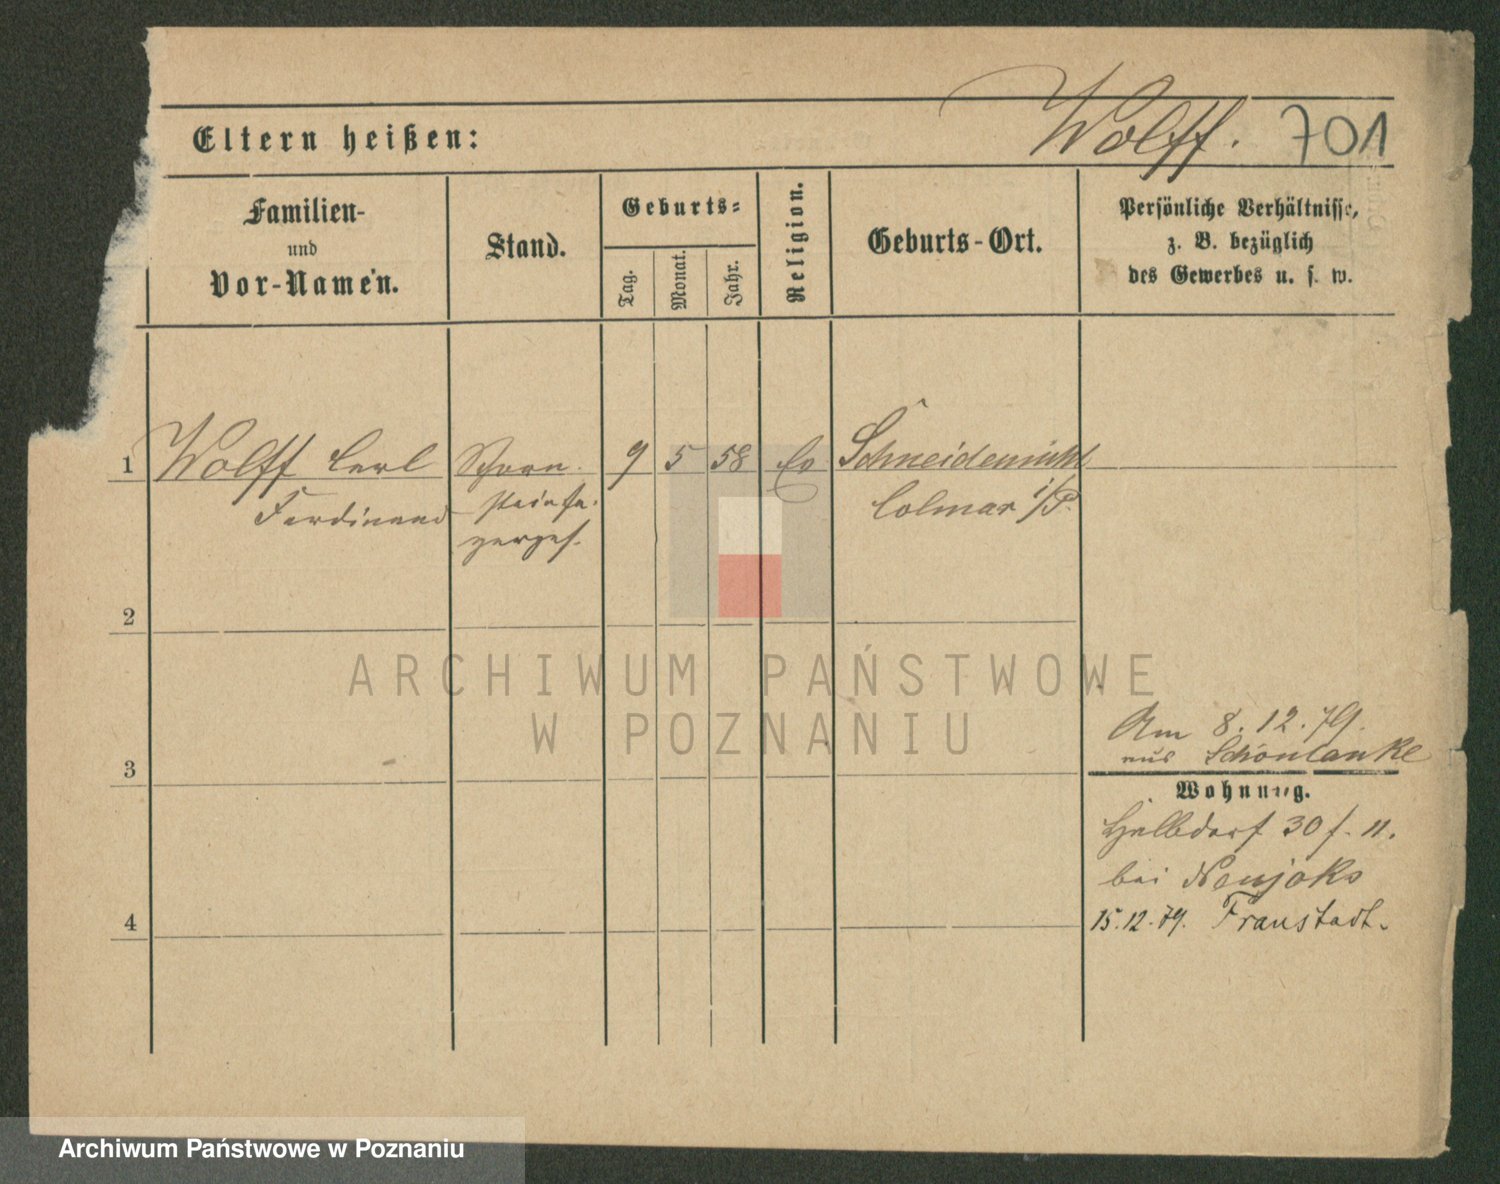 Wolff. 701
Eltern heißen:
Familien-
und
Vor-Namen.
Stand.
Geburts-
Tag.
Monat.
Jahr.
Religion.
Geburts-Ort.
Persönliche Verhältnisse,
z. B. bezüglich
des Gewerbes u. s. w.
1 Wolff Carl Schorn- 9 5 58 Ev Schneidemühl
Ferdinand steinfe- Colmar i/P.
gerges.
2
3
4
Am 8.12.79.
aus Schönlanke
Wohnung.
Halbdorf 30 f. II.
bei Neujoks
15.12.79. Fraustadt.
ARCHIWUM PAŃSTWOWE
W POZNANIU
Archiwum Państwowe w Poznaniu